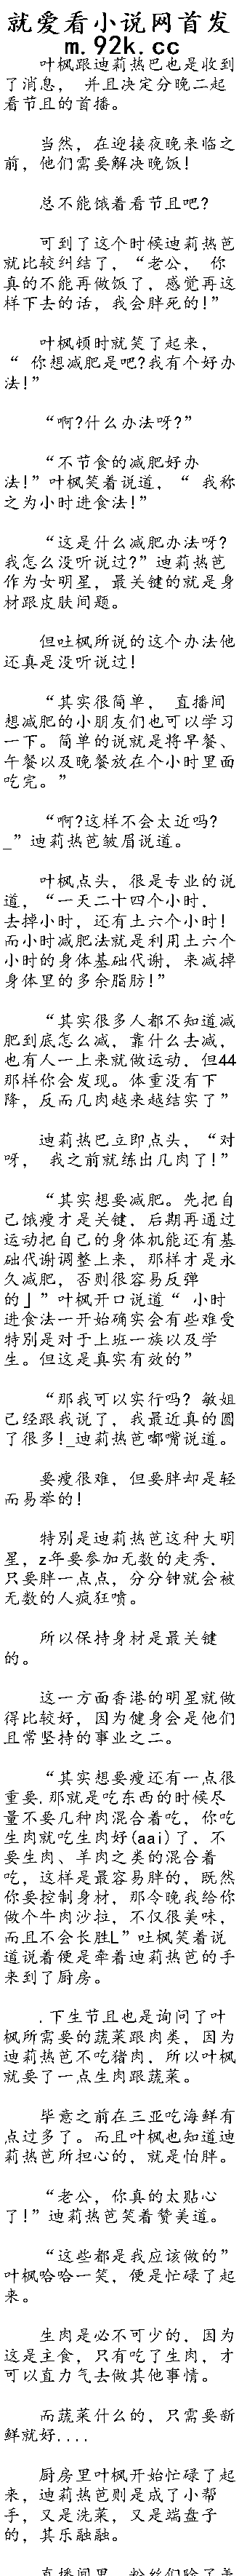 就爱看小说网首发
m.92k.cc
叶枫跟迪莉热巴也是收到
了消息， 并且决定分晚二起
看节且的首播。
当然，在迎接夜晚来临之
前，他们需要解决晚饭！
总不能饿着看节且吧？
可到了这个时候迪莉热芭
就比较纠结了，“老公， 你
真的不能再做饭了，感觉再这
样下去的话，我会胖死的！”
叶枫顿时就笑了起来，
“ 你想减肥是吧？我有个好办
法！”
“啊？什么办法呀？”
“不节食的减肥好办
法！”叶枫笑着说道，“ 我称
之为小时进食法！”
“这是什么减肥办法呀？
我怎么没听说过？”迪莉热芭
作为女明星，最关键的就是身
材跟皮肤间题。
但吐枫所说的这个办法他
还真是没听说过！
“其实很简单， 直播间
想减肥的小朋友们也可以学习
一下。简单的说就是将早餐、
午餐以及晚餐放在个小时里面
吃完。”
“啊？这样不会太近吗？
_”迪莉热芭皱眉说道。
叶枫点头，很是专业的说
道，“一天二十四个小时，
去掉小时，还有土六个小时！
而小时减肥法就是利用土六个
小时的身体基础代谢，来减掉
身体里的多余脂肪！”
“其实很多人都不知道减
肥到底怎么减，靠什么去减，
也有人一上来就做运动，但44
那样你会发现。体重没有下
降，反而几肉越来越结实了”
迪莉热巴立即点头，“对
呀， 我之前就练出几肉了！”
“其实想要减肥。先把自
己饿瘦才是关键，后期再通过
运动把自己的身体机能还有基
础代谢调整上来，那样才是永
久减肥，否则很容易反弹
的」”叶枫开口说道“ 小时
进食法一开始确实会有些难受
特别是对于上班一族以及学
生。但这是真实有效的”
“那我可以实行吗？ 敏姐
己经跟我说了，我最近真的圆
了很多！_迪莉热芭嘟嘴说道。
要瘦很难，但要胖却是轻
而易举的！
特别是迪莉热芭这种大明
星，z年要参加无数的走秀．
只要胖一点点，分分钟就会被
无数的人疯狂喷。
所以保持身材是最关键
的。
这一方面香港的明星就做
得比较好，因为健身会是他们
且常坚持的事业之二。
“其实想要瘦还有一点很
重要．那就是吃东西的时候尽
量不要几种肉混合着吃，你吃
生肉就吃生肉好(aai)了．不
要生肉、羊肉之类的混合着
吃，这样是最容易胖的，既然
你要控制身材，那今晚我给你
做个牛肉沙拉，不仅很美味，
而且不会长胜L”吐枫笑着说
道说着便是牵着迪莉热芭的手
来到了厨房。
.下生节且也是询问了叶
枫所需要的蔬菜跟肉类，因为
迪莉热芭不吃猪肉．所以叶枫
就要了一点生肉跟蔬菜。
毕意之前在三亚吃海鲜有
点过多了。而且叶枫也知道迪
莉热芭所担心的，就是怕胖。
“老公，你真的太贴心
了！”迪莉热芭笑着赞美道。
“这些都是我应该做的”
叶枫哈哈一笑，便是忙碌了起
来。
生肉是必不可少的，因为
这是主食，只有吃了生肉，才
可以直力气去做其他事情。
而蔬菜什么的，只需要新
鲜就好....
厨房里叶枫开始忙碌了起
来，迪莉热芭则是成了小帮
手，又是洗菜，又是端盘子
的，其乐融融。